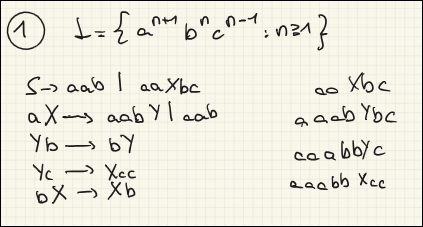 1 L = { aⁿ⁺¹ bⁿ cⁿ⁻¹ : n≥1 }
S → aab | aaXbc
aX → aabY | aab
Yb → bY
Yc → Xcc
bX → Xb
aa Xbc
aaab Ybc
aaabbYc
aaabb Xcc